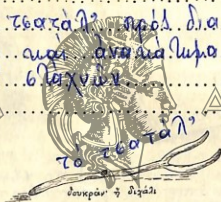 τσατάλ’ πρὸς δια
καὶ ἀνακάτωμα
σταχυῶν
τὸ τσατάλ’
δουκράν’ ἢ διχάλι